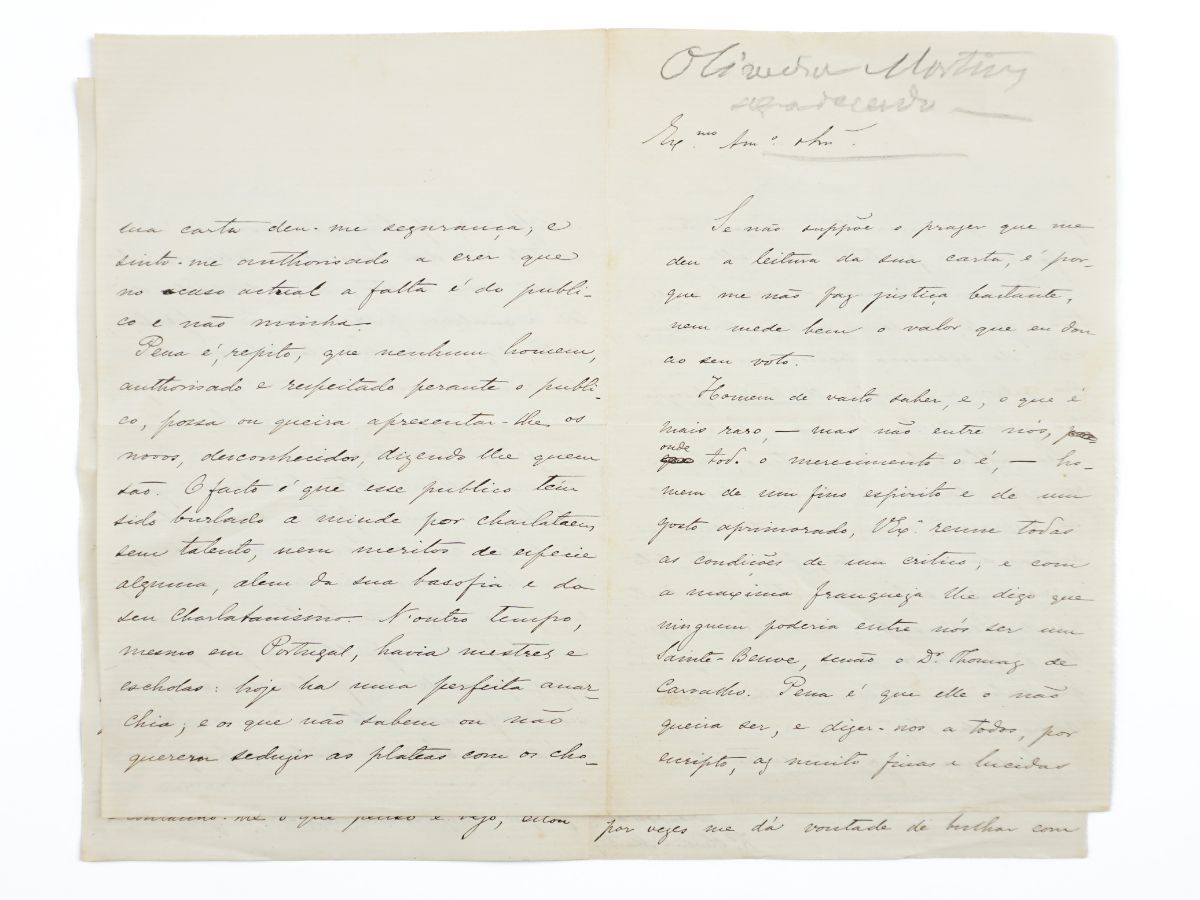 Oliveira Martins
agradecendo
Exmo Amo e Snr.
Se não suppõe o prazer que me
deu a leitura da sua carta, é por-
que me não faz justiça bastante,
nem mede bem o valor que eu dou
ao seu voto.
Homem de vasto saber, e, o que é
mais raro, — mas não entre nós,
onde
todo o merecimento o é, — ho-
mem de um fino espirito e de um
gosto aprimorado, VExa. reune todas
as condições de um critico, e com
a maxima franqueza lhe digo que
ninguem poderia entre nós ser um
Sainte-Beuve, senão o Dr. Thomaz de
Carvalho. Pena é que elle o não
queira ser, e dizer-nos a todos, por
escripto, as muito finas e lucidas
sua carta deu-me segurança; e
sinto-me authorisado a crer que
no caso actual a falta é do publi-
co e não minha.
Pena é, repito, que nenhum homem,
authorisado e respeitado perante o publi-
co, possa ou queira apresentar-lhe os
novos, desconhecidos, dizendo lhe quem
são. O facto é que esse publico tem
sido burlado a miude por charlatães,
sem talento, nem meritos de especie
alguma, alem da sua basofia e do
seu charlatanismo. N'outro tempo,
mesmo em Portugal, havia mestres e
escholas: hoje ha uma perfeita anar-
chia; e os que não sabem ou não
querem seduzir as plateas com os cho-
me o que penso e vejo, estou
por vezes me dá vontade de bulhar com